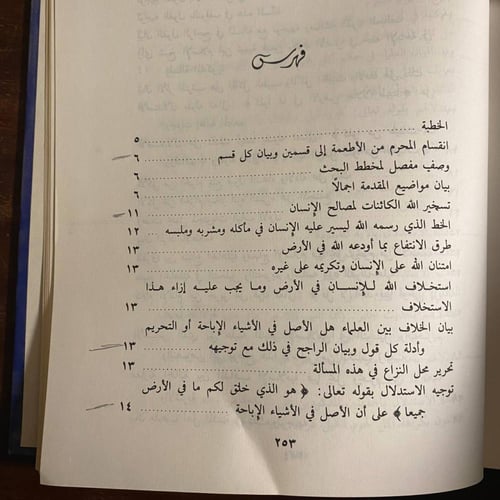 فهرس
الخطبة ..... ٥
انقسام المحرم من الأطعمة إلى قسمين وبيان كل قسم ..... ٦
وصف مفصل لمخطط البحث ..... ٦
بيان مواضيع المقدمة اجمالاً ..... ٦
تسخير الله الكائنات لمصالح الإنسان ..... ١١
الخط الذي رسمه الله ليسير عليه الإنسان في مأكله ومشربه وملبسه ١٢
طرق الانتفاع بما أودعه الله في الأرض ..... ١٣
امتنان الله على الإنسان وتكريمه على غيره ..... ١٣
استخلاف الله للإنسان في الأرض وما يجب عليه إزاء هذا
الاستخلاف ..... ١٣
بيان الخلاف بين العلماء هل الأصل في الأشياء الإباحة أو التحريم
وأدلة كل قول وبيان الراجح في ذلك مع توجيهه ..... ١٣
تحرير محل النزاع في هذه المسألة ..... ١٣
توجيه الاستدلال بقوله تعالى: ﴿ هو الذي خلق لكم ما في الأرض
جميعا ﴾ على أن الأصل في الأشياء الإباحة ..... ١٤
٢٥٣